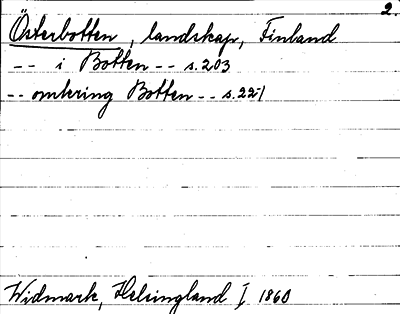 2.
Österbotten, landskap, Finland
-- i Botten -- s. 203
-- omkring Botten -- s. 221
Widmark, Helsingland I 1860